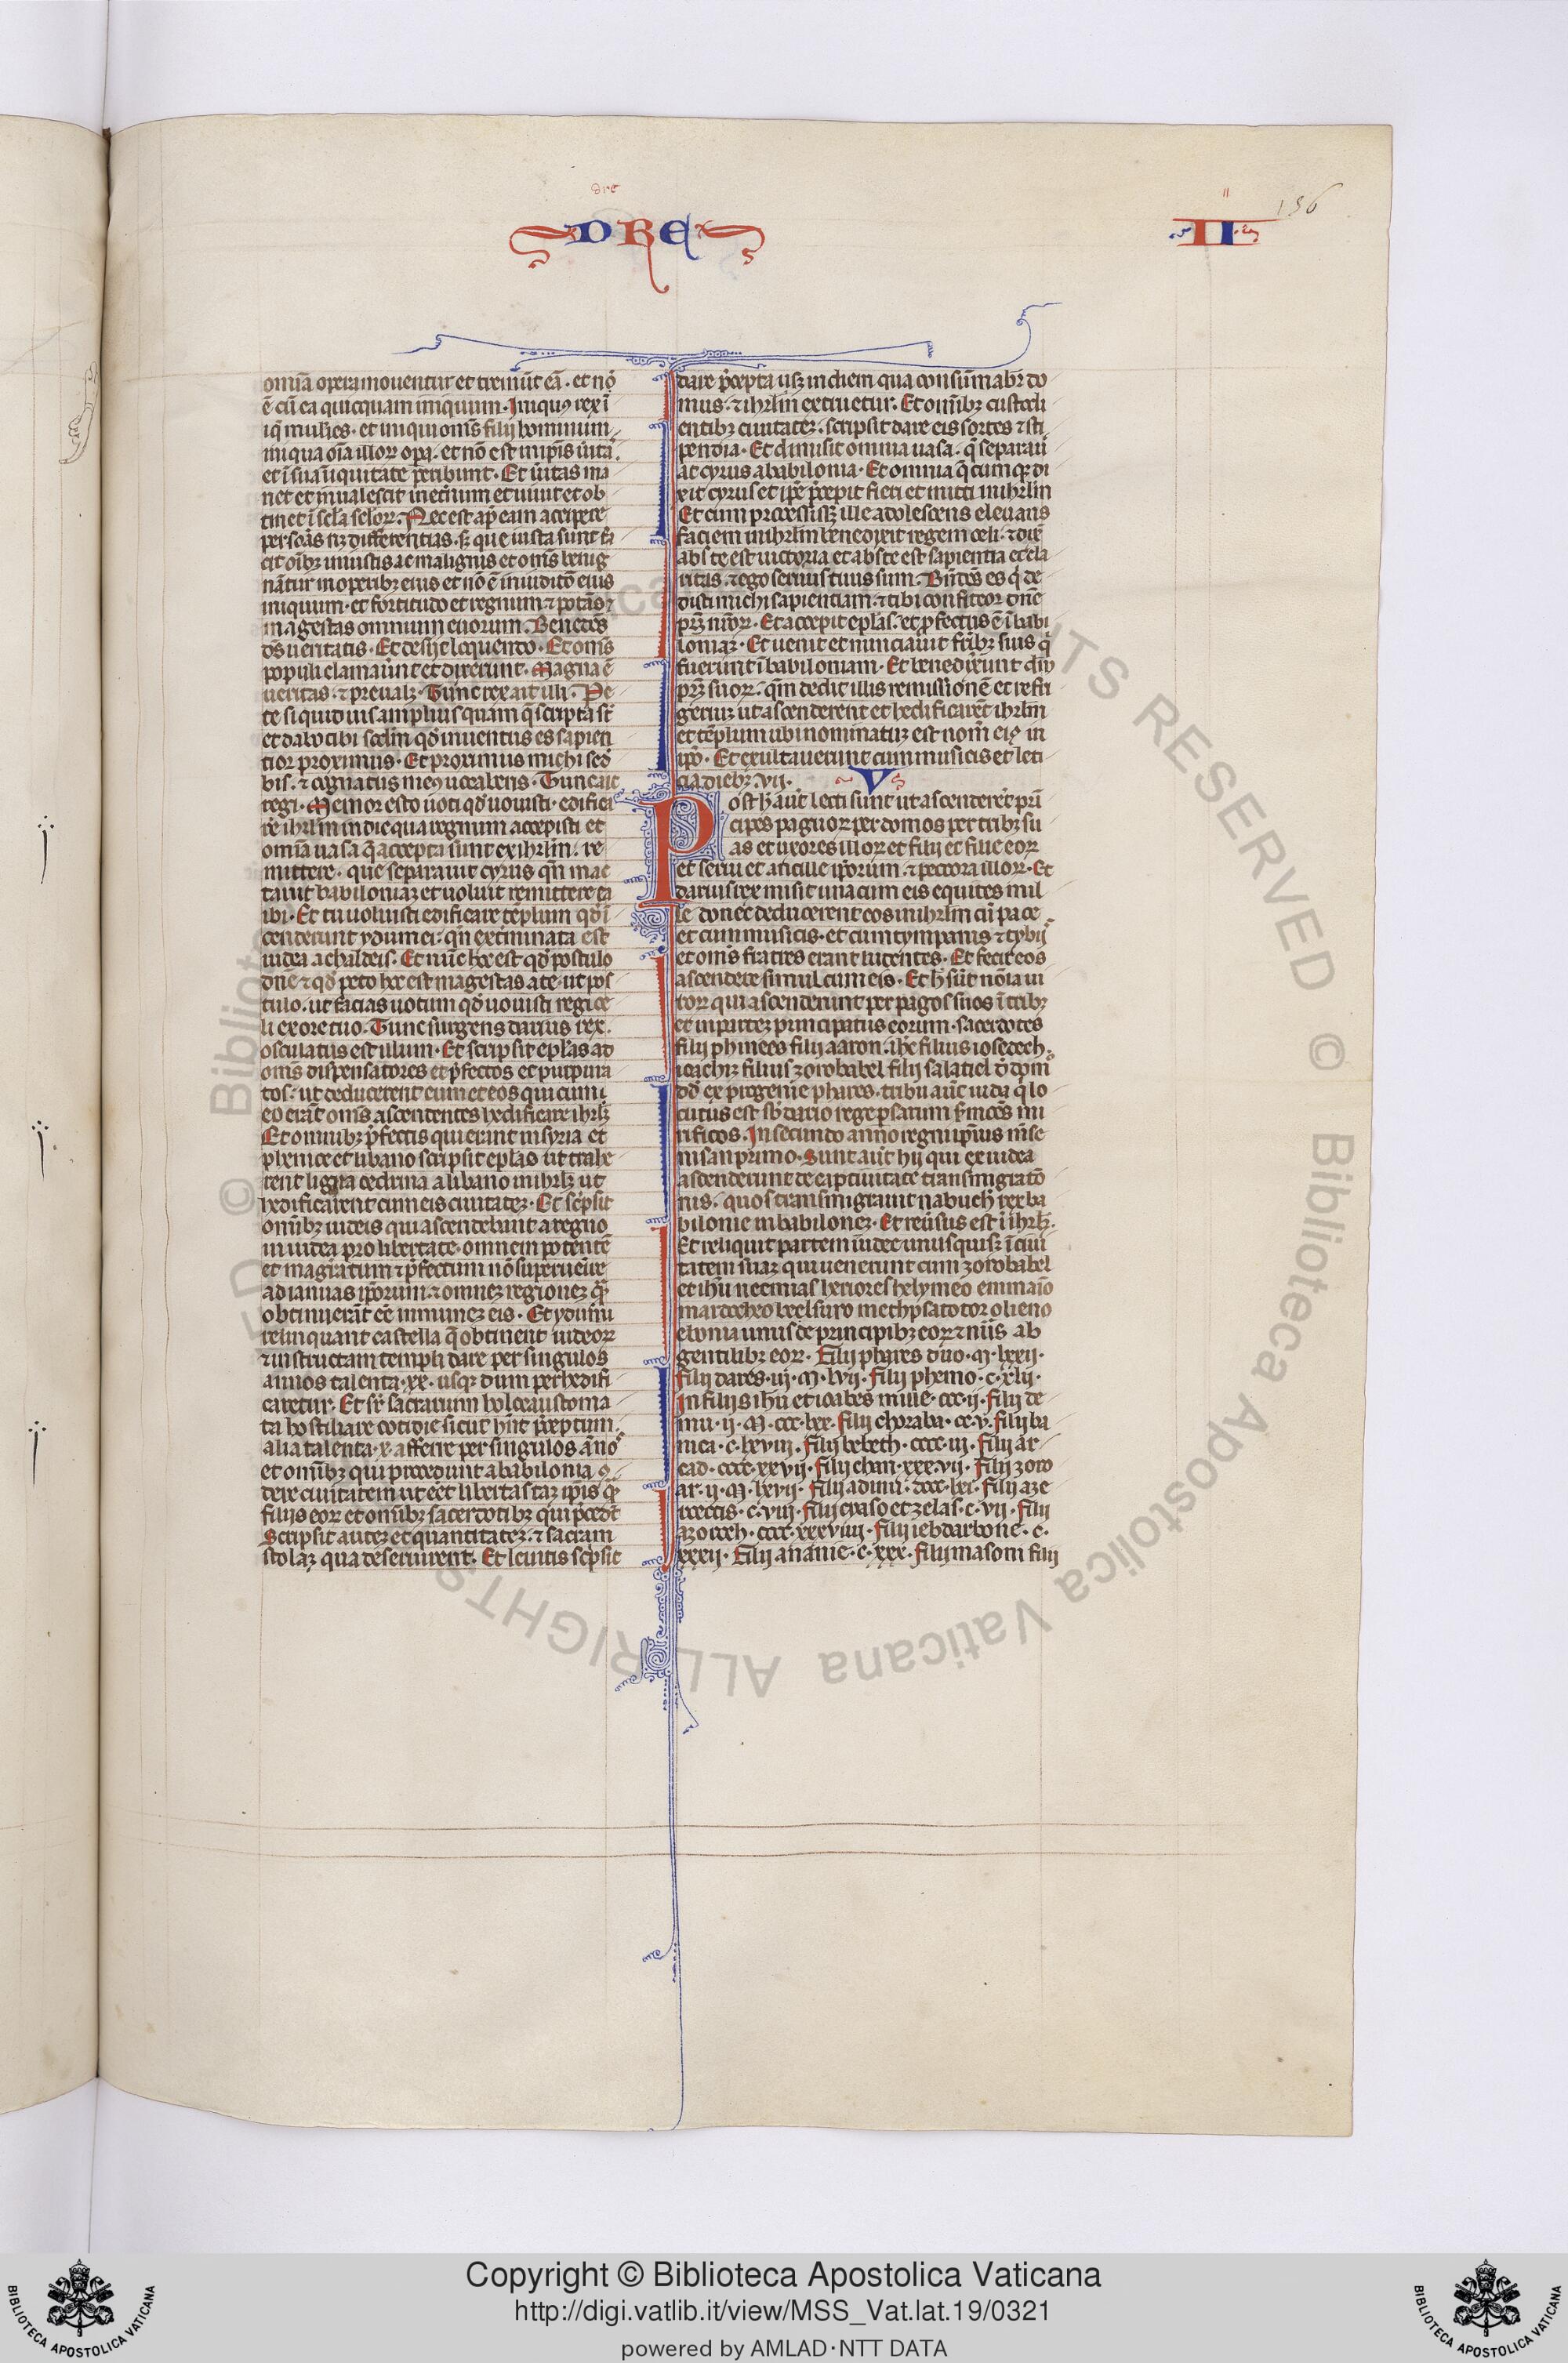 dre
DRE
II
II
156
omīa opera mouentur et tremūt eā · et nō
ē cū ea quicquam iniquum · Iniqus rex ī
iq mulies · et iniqui oms filij hominum
iniqua oīa illoꝝ opa · et nō est in ipīs uita
et ī sua īiquitate peribunt · Et uitas ma
net et inualescit in etnum et uiuit et ob
tinet ī scla scloꝝ · Nec est ap eam accipere
persoās nꝫ differentias · sꝫ que iusta sunt fa
cit oībꝫ iniustis ac malignis et oms benig
nātur in operibꝫ eius et nō ē in iuditō eius
iniquum · et fortitudo et regnum ⁊ potās ⁊
magestas omnium euorum · Benedcs
ds ueritatis · Et desijt loquendo · Et oms
populi clamauūt et dixerunt · Magna ē
ueritas · ⁊ preualꝫ · Tunc rex ait illi · Pe
te si quid uis amplius quam q̄ scripta st
et dabo tibi scdm qd inuentus es sapien
tior proximus · Et proximus michi sed
bis · ⁊ cognatus meꝯ uocaberis · Tunc ait
regi · Memor esto uoti qd uouisti · edifica
re ihrlm in die qua regnum accepisti et
omīa uasa q̄ accepta sunt ex ihrlm · re
mittere · que separauit cyrus qn mac
tauit babiloniaꝫ et uoluit remittere ea
ibi · Et tu uoluisti edificare templum qd ī
cenderunt ydumei · qn exterminata est
iudea a chaldeis · Et nūc hoc est qd postulo
dne ⁊ qd peto hoc est magestas a te · ut pos
tulo · ut facias uotum qd uouisti regi ce
li ex ore tuo · Tunc surgens darius rex
osculatus est illum · Et scripsit eplas ad
oms dispensatores et pfectos et purpura
tos · ut deducerent eum et eos qui cum
eo erāt oms ascendentes hedificare ihrlꝫ
Et omnibꝫ pfectis qui erant in syria et
phenice et libano scripsit eplas ut trahe
rent ligna cedrina a libano in ihrlꝫ ut
hedificarent cum eis ciuitateꝫ · Et scpsit
omībꝫ iudeis qui ascendebant a regno
in iudea pro libertate · omnem potentē
et magratum ⁊ pfectum nō superuenire
ad ianuas ipoꝝum · ⁊ omneꝫ regioneꝫ quā
obtinuerāt eē inmuneꝫ eis · Et ydumi
relinquant castella q̄ obtinent iudeoꝝ
⁊ in structuram templi dare per singulos
annos talenta · xx · usqꝫ dum perhedifi
caretur · Et sr sacrarium holocaustoma
ta hostiare cotidie sicut hnt pceptum ·
alia talenta · x · afferre per singulos anno
et omībꝫ qui procedunt a babilonia ꝯ
dere ciuitatem ut eēt libertas taꝫ ipis quā
filiis eoꝝ et omībꝫ sacerdotibꝫ qui pcedt
Scripsit auteꝫ et quantitateꝫ · ⁊ sacram
stolaꝫ qua deseruirent · Et leuitis scpsit
dare pcepta usqꝫ in diem qua consūmabr do
mus · ⁊ ihrlm extruetur · Et omībꝫ custodi
entibꝫ ciuitateꝫ · scripsit dare eis sortes ⁊ sti
pendia · Et dimisit omnia uasa · q̄ separau
at cyrus a babilonia · Et omnia q̄cumqꝫ di
xit cyrus et ipe pcepit fieri et mitti in ihrlm
Et cum processissꝫ ille adolescens eleuans
faciem in ihrlm benedixit regem celi · ⁊ dix
abs te est uictoria et abs te est sapientia et cla
ritas · ⁊ ego seruus tuus sum · Bndcs es q de
disti michi sapientiam · ⁊ tibi confiteor dne
prꝫ nroꝝ · Et accepit eplas · et pfectus ē ī babi
loniaꝫ · Et uenit et nunciauit frībꝫ suis q
fuerunt ī babiloniam · Et benedixerunt dm
prꝫ suoꝝ · qm dedit illis remissionē et refri
geriuꝫ ut ascenderent et hedificaret ihrlm
et templum ubi nominatuꝫ est nom eiꝯ in
ipo · Et exultauerunt cum musicis et leti
cia diebꝫ · vii ·
V
Post h aut lecti sunt ut ascenderet prī
cipes paguoꝝ per domos per tribꝫ su
as et uxores illoꝝ et filij et filie eoꝝ
et serui et ancille ipoꝝum · ⁊ peccora illoꝝ · Et
darius rex misit una cum eis equites mil
le · donec deducerent eos in ihrlm cū pace
et cum musicis · et cum tympanis ⁊ tybij
et oms fratres erant ludentes · Et fecit eos
ascendere simul cum eis · Et h sūt noīa ui
roꝝ qui ascenderunt per pagos suos ī tribꝫ
et in parteꝫ principatus eorum · sacerdotes
filij phinees filij aaron · ihc filius iosedech ·
ioachiꝫ filius zorobabel filij salatiel d domo
dd ex progenie phares · tribu aut iuda q lo
cutus est sb dario rege psarum smōes mi
rificos · In secundo anno regni ipius mse
nisan primo · Sunt aut hij qui ex iudea
ascenderunt de captiuitate transmigrato
nis · quos transmigrauit nabuch rex ba
bilonie in babiloneꝫ · Et reūsus est ī ihrlꝫ ·
Et reliquit partem iudee unusquisqꝫ ī ciui
tatem suaꝫ qui uenerunt cum zorobabel
et ihu neemias bariores helymeo emmaīo
mardocheo beelsuro methpsatotor olieno
ebonia unus de principibꝫ eoꝝ ⁊ nūs ab
gentilibꝫ eoꝝ · Filij phares duo · M · lxxii ·
filij dares · iij · M · lvii · filij phemo · c · xlij ·
In filijs ihu et ioabes mille · ccc · ij · filij de
mu · ij · M · ccc · lxx · filij choraba · cc · v · filij ba
nica · c · lxviii · filij bebeth · cccc · iii · filij ar
cad · cccc · xxvij · filij chan · xxx · vii · filij zoro
ar · ij · M · lxvij · filij adinu · dccc · lxi · filij aze
recctis · c · viij · filij ciaso et zelas · c · vii · filij
azoroch · cccc · xxxviiij · filij iebdarbone · c ·
xxxij · filij ananie · c · xxx · filij masoni filij
Copyright © Biblioteca Apostolica Vaticana
http://digi.vatlib.it/view/MSS_Vat.lat.19/0321
powered by AMLAD · NTT DATA
BIBLIOTECA APOSTOLICA VATICANA
BIBLIOTECA APOSTOLICA VATICANA
© Biblioteca Apostolica Vaticana ALL RIGHTS RESERVED